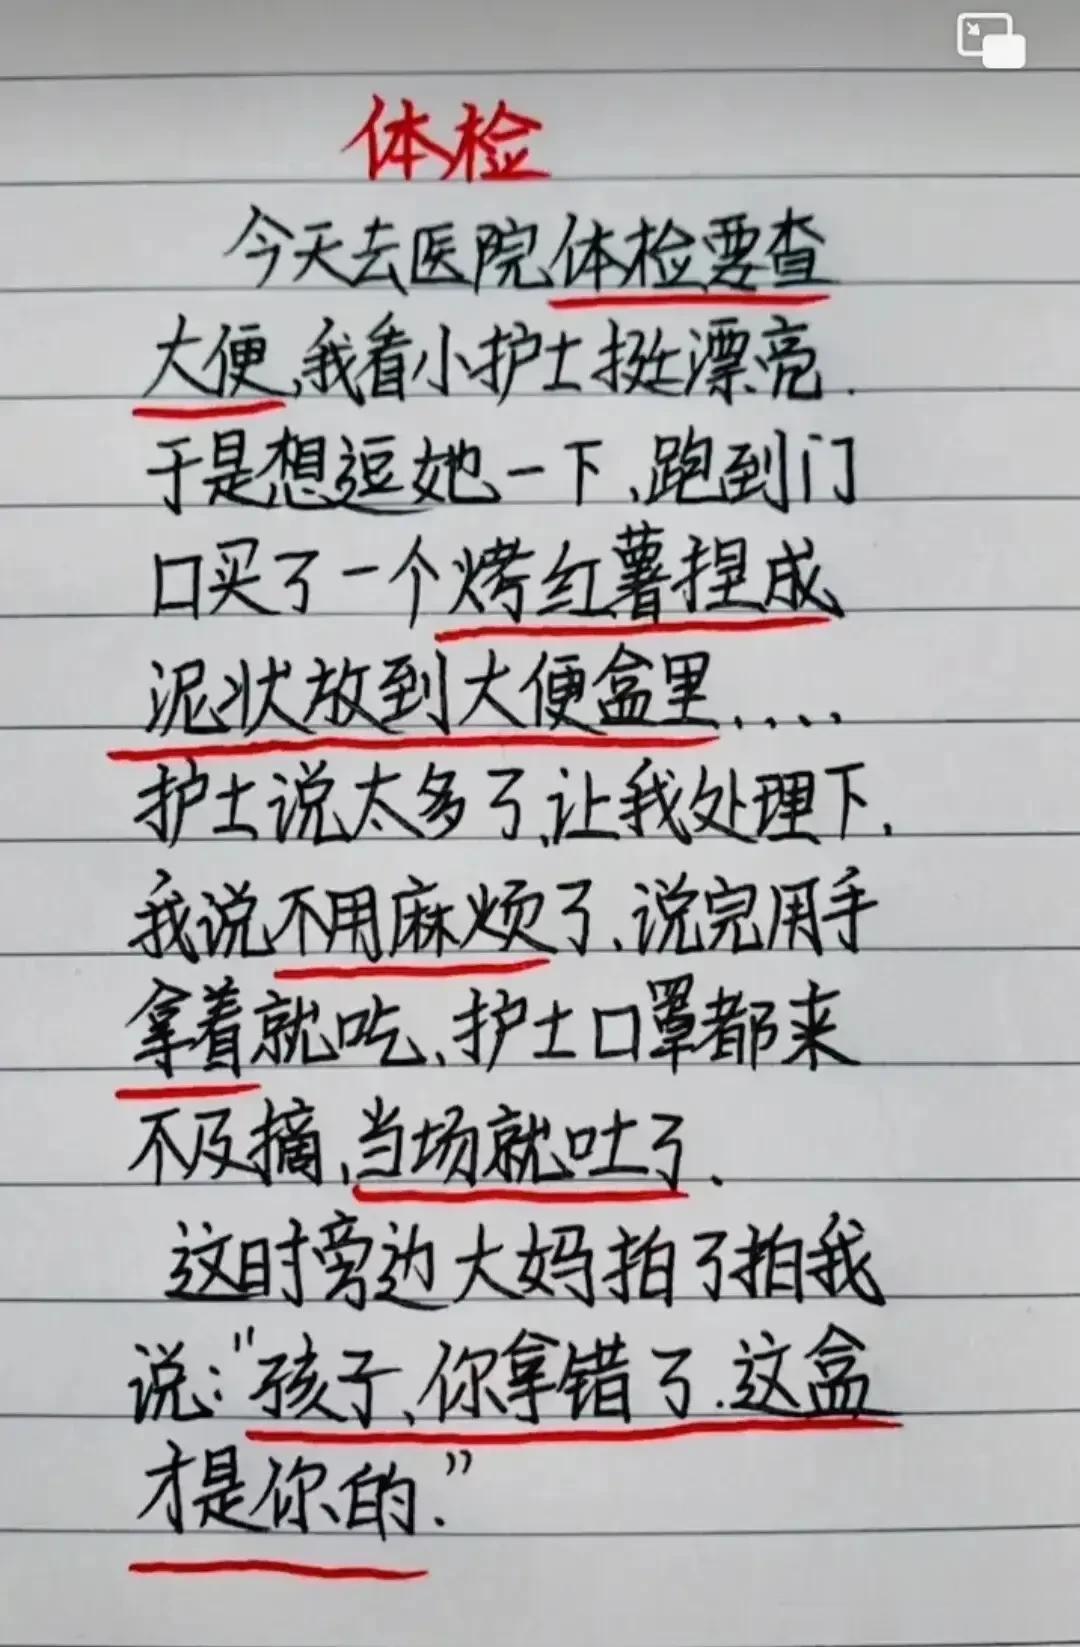 体检
今天去医院体检要查
大便,我看小护士挺漂亮.
于是想逗她一下,跑到门
口买了一个烤红薯捏成
泥状放到大便盒里....
护士说太多了,让我处理下.
我说不用麻烦了,说完用手
拿着就吃,护士口罩都来
不及摘,当场就吐了.
这时旁边大妈拍了拍我
说:"孩子,你拿错了.这盒
才是你的."